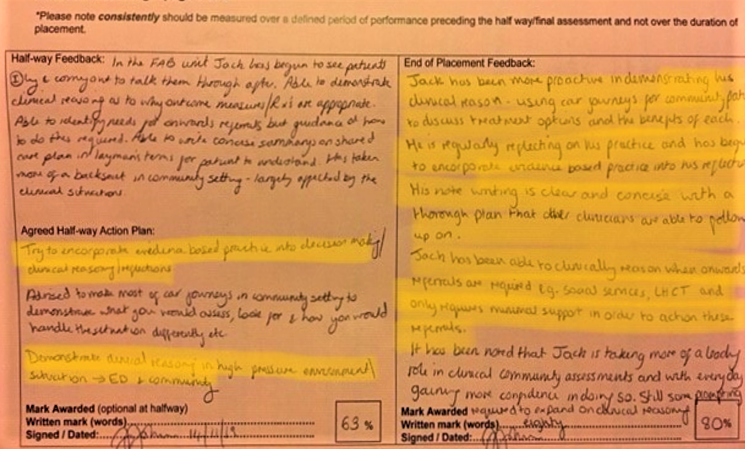 *Please note consistently should be measured over a defined period of performance preceding the half way/final assessment and not over the duration of
placement.
Half-way Feedback: In the FAB unit Jack has begun to see patients
Ily & comy out to talk them through after. Able to demonstrate
clinical reasoning as to why outcome measures/Rx's are appropriate.
Able to identify needs for onwards referrals but guidance of how
to do this required. Able to write concise summarys on shared
care plan in laymans terms for patient to understand. Has taken
more of a backseat in community setting - largely affected by the
clinical situations.
Agreed Half-way Action Plan:
Try to encorporate evidence based practice into decision making/
clinical reasoning/reflections
Advised to make most of car journeys in community setting to
demonstrate what you would assess, look for & how you would
handle the situation differently etc.
Demonstrate clinical reasoning in high pressure environment/
situation → ED & community
Mark Awarded (optional at halfway)
Written mark (words)
63 %
Signed / Dated: 14/11/19
End of Placement Feedback:
Jack has been more proactive in demonstrating his
clinical reason - using car journeys for community pat
to discuss treatment options and the benefits of each.
He is regularly reflecting on his practice and has beg
to encorporate evidence based practice into his reflecti
His note writing is clear and concise with a
thorough plan that other clinicians are able to follow
up on.
Jack has been able to clinically reason when onwards
referrals are required e.g. social services, LHCT and
only requires minimal support in order to action these
referrals.
It has been noted that Jack is taking more of a leady
role in clinical community assessments and with everyday
gaining more confidence in doing so. Still some prompting
required to expand on clinical reasoning
Mark Awarded
Written mark (words) eighty
80%
Signed / Dated: